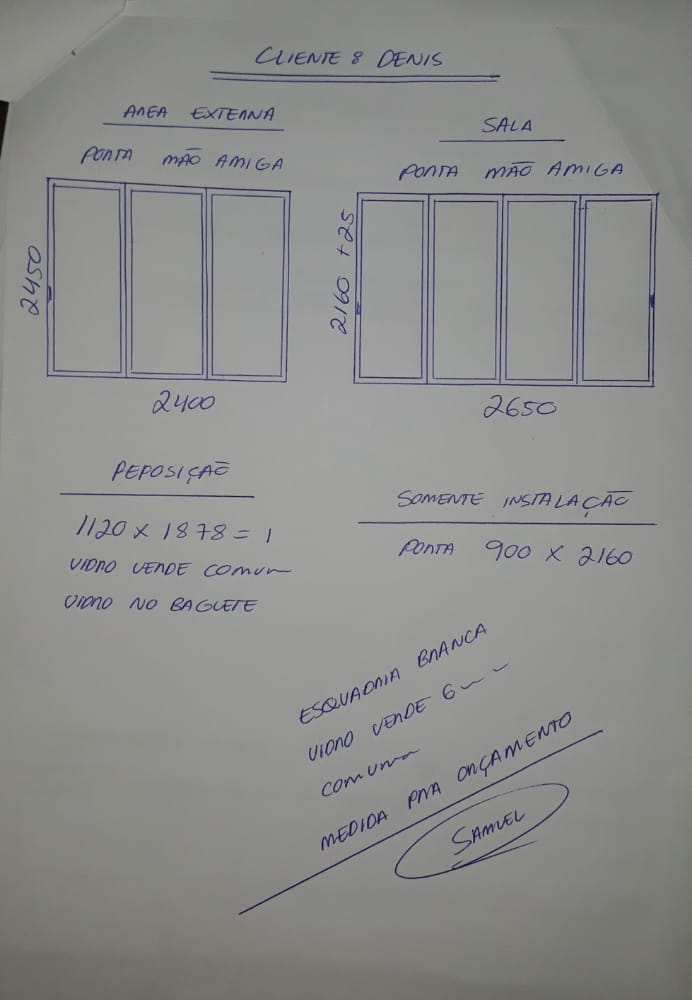 CLIENTE : DENIS
AREA EXTERNA
PORTA MÃO AMIGA
2450
2400
SALA
PORTA MÃO AMIGA
2160 +25
2650
REPOSIÇÃO
1120 x 1878 = 1
VIDRO VERDE COMUM
VIDRO NO BAGUETE
SOMENTE INSTALAÇÃO
PORTA 900 X 2160
ESQUADRIA BRANCA
VIDRO VERDE 6mm
COMUM
MEDIDA PRA ORÇAMENTO
SAMUEL